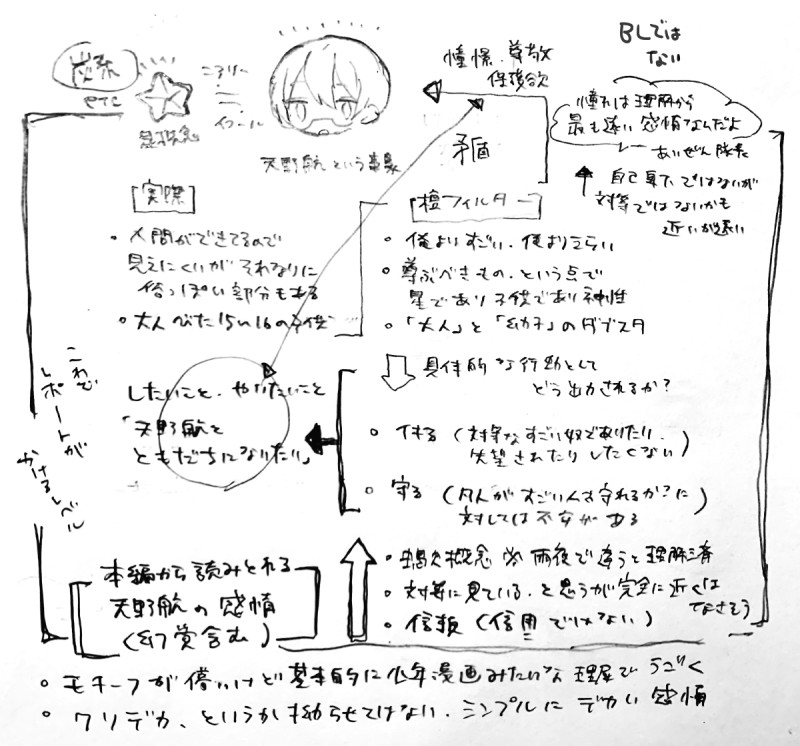 BLでは
ない
炭酸
etc
星概念
イコール
天野航という事象
憧憬、尊敬
保護欲
矛盾
憧れは理解から
最も遠い感情なんだよ
あいぜん隊長
自己卑下ではないが
対等ではないかも
近いが遠い
実際
・人間ができてるので
見えにくいがそれなりに
俗っぽい部分もある
・大人びた15い16の子供
檀フィルター
・俺よりすごい、俺よりえらい
・尊ぶべきもの、という点で
星であり子供であり神性
・「大人」と「幼子」のダブスタ
具体的な行動として
どう出力されるか?
したいこと、やりたいこと
「天野航と
ともだちになりたい」
・(対等なすごい奴でありたい、
失望されたりしたくない)
・守る(凡人がすごい人を守れるか?に
対しては不安がある
これで
レポートが
かけるレベル
本編から読みとれる
天野航の感情
(幻覚含む)
概念 ※雨夜で違うと理解済
・対等に見ている、と思うが完全に近くは
なさそう
・信頼(信用ではない)
・モチーフが儚いけど基本的に少年漫画みたいな理屈でうごく
・クソデカ、というか拗らせてはない、シンプルにデカい感情